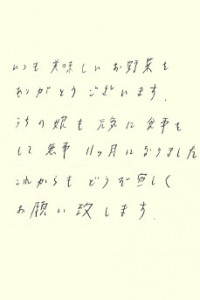 いつも美味しいお野菜を
ありがとうございます。
うちの娘も元気に食事を
して無事11ヶ月になりました
これからもどうぞ宜しく
お願い致します。